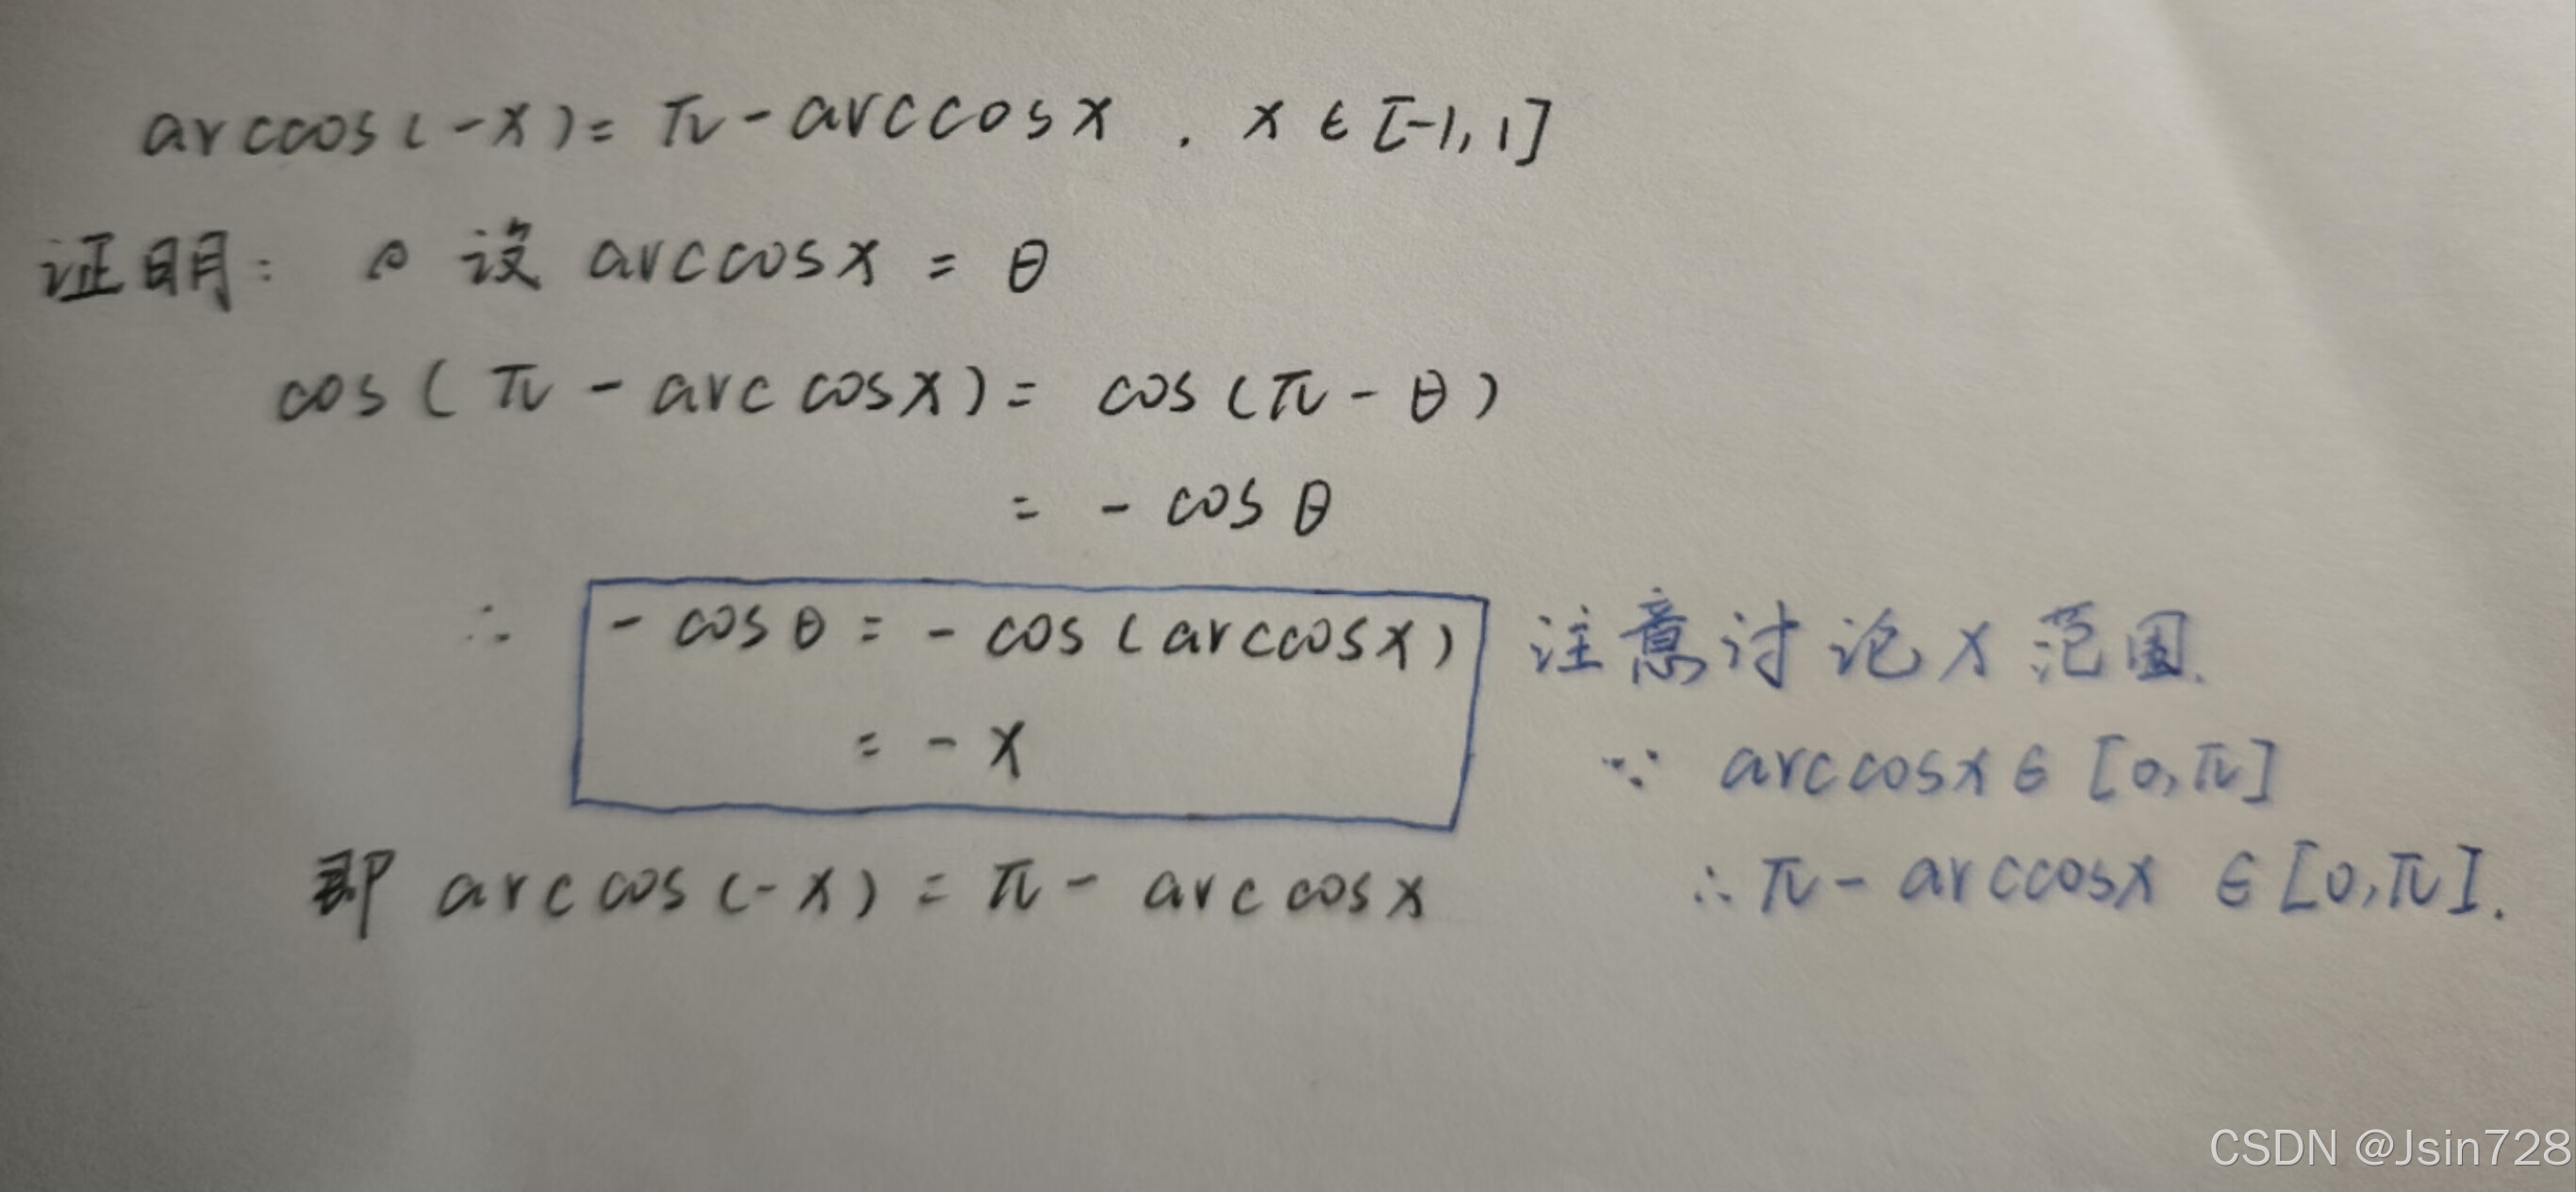 arccos(-x) = π - arccosx , x ∈ [-1, 1]
证明: 设 arccosx = θ
cos(π - arccosx) = cos(π - θ)
= - cosθ
∴ - cosθ = - cos(arccosx) 注意讨论x范围.
= - x ∵ arccosx ∈ [0, π]
即 arccos(-x) = π - arccosx ∴ π - arccosx ∈ [0, π].
CSDN @Jsin728